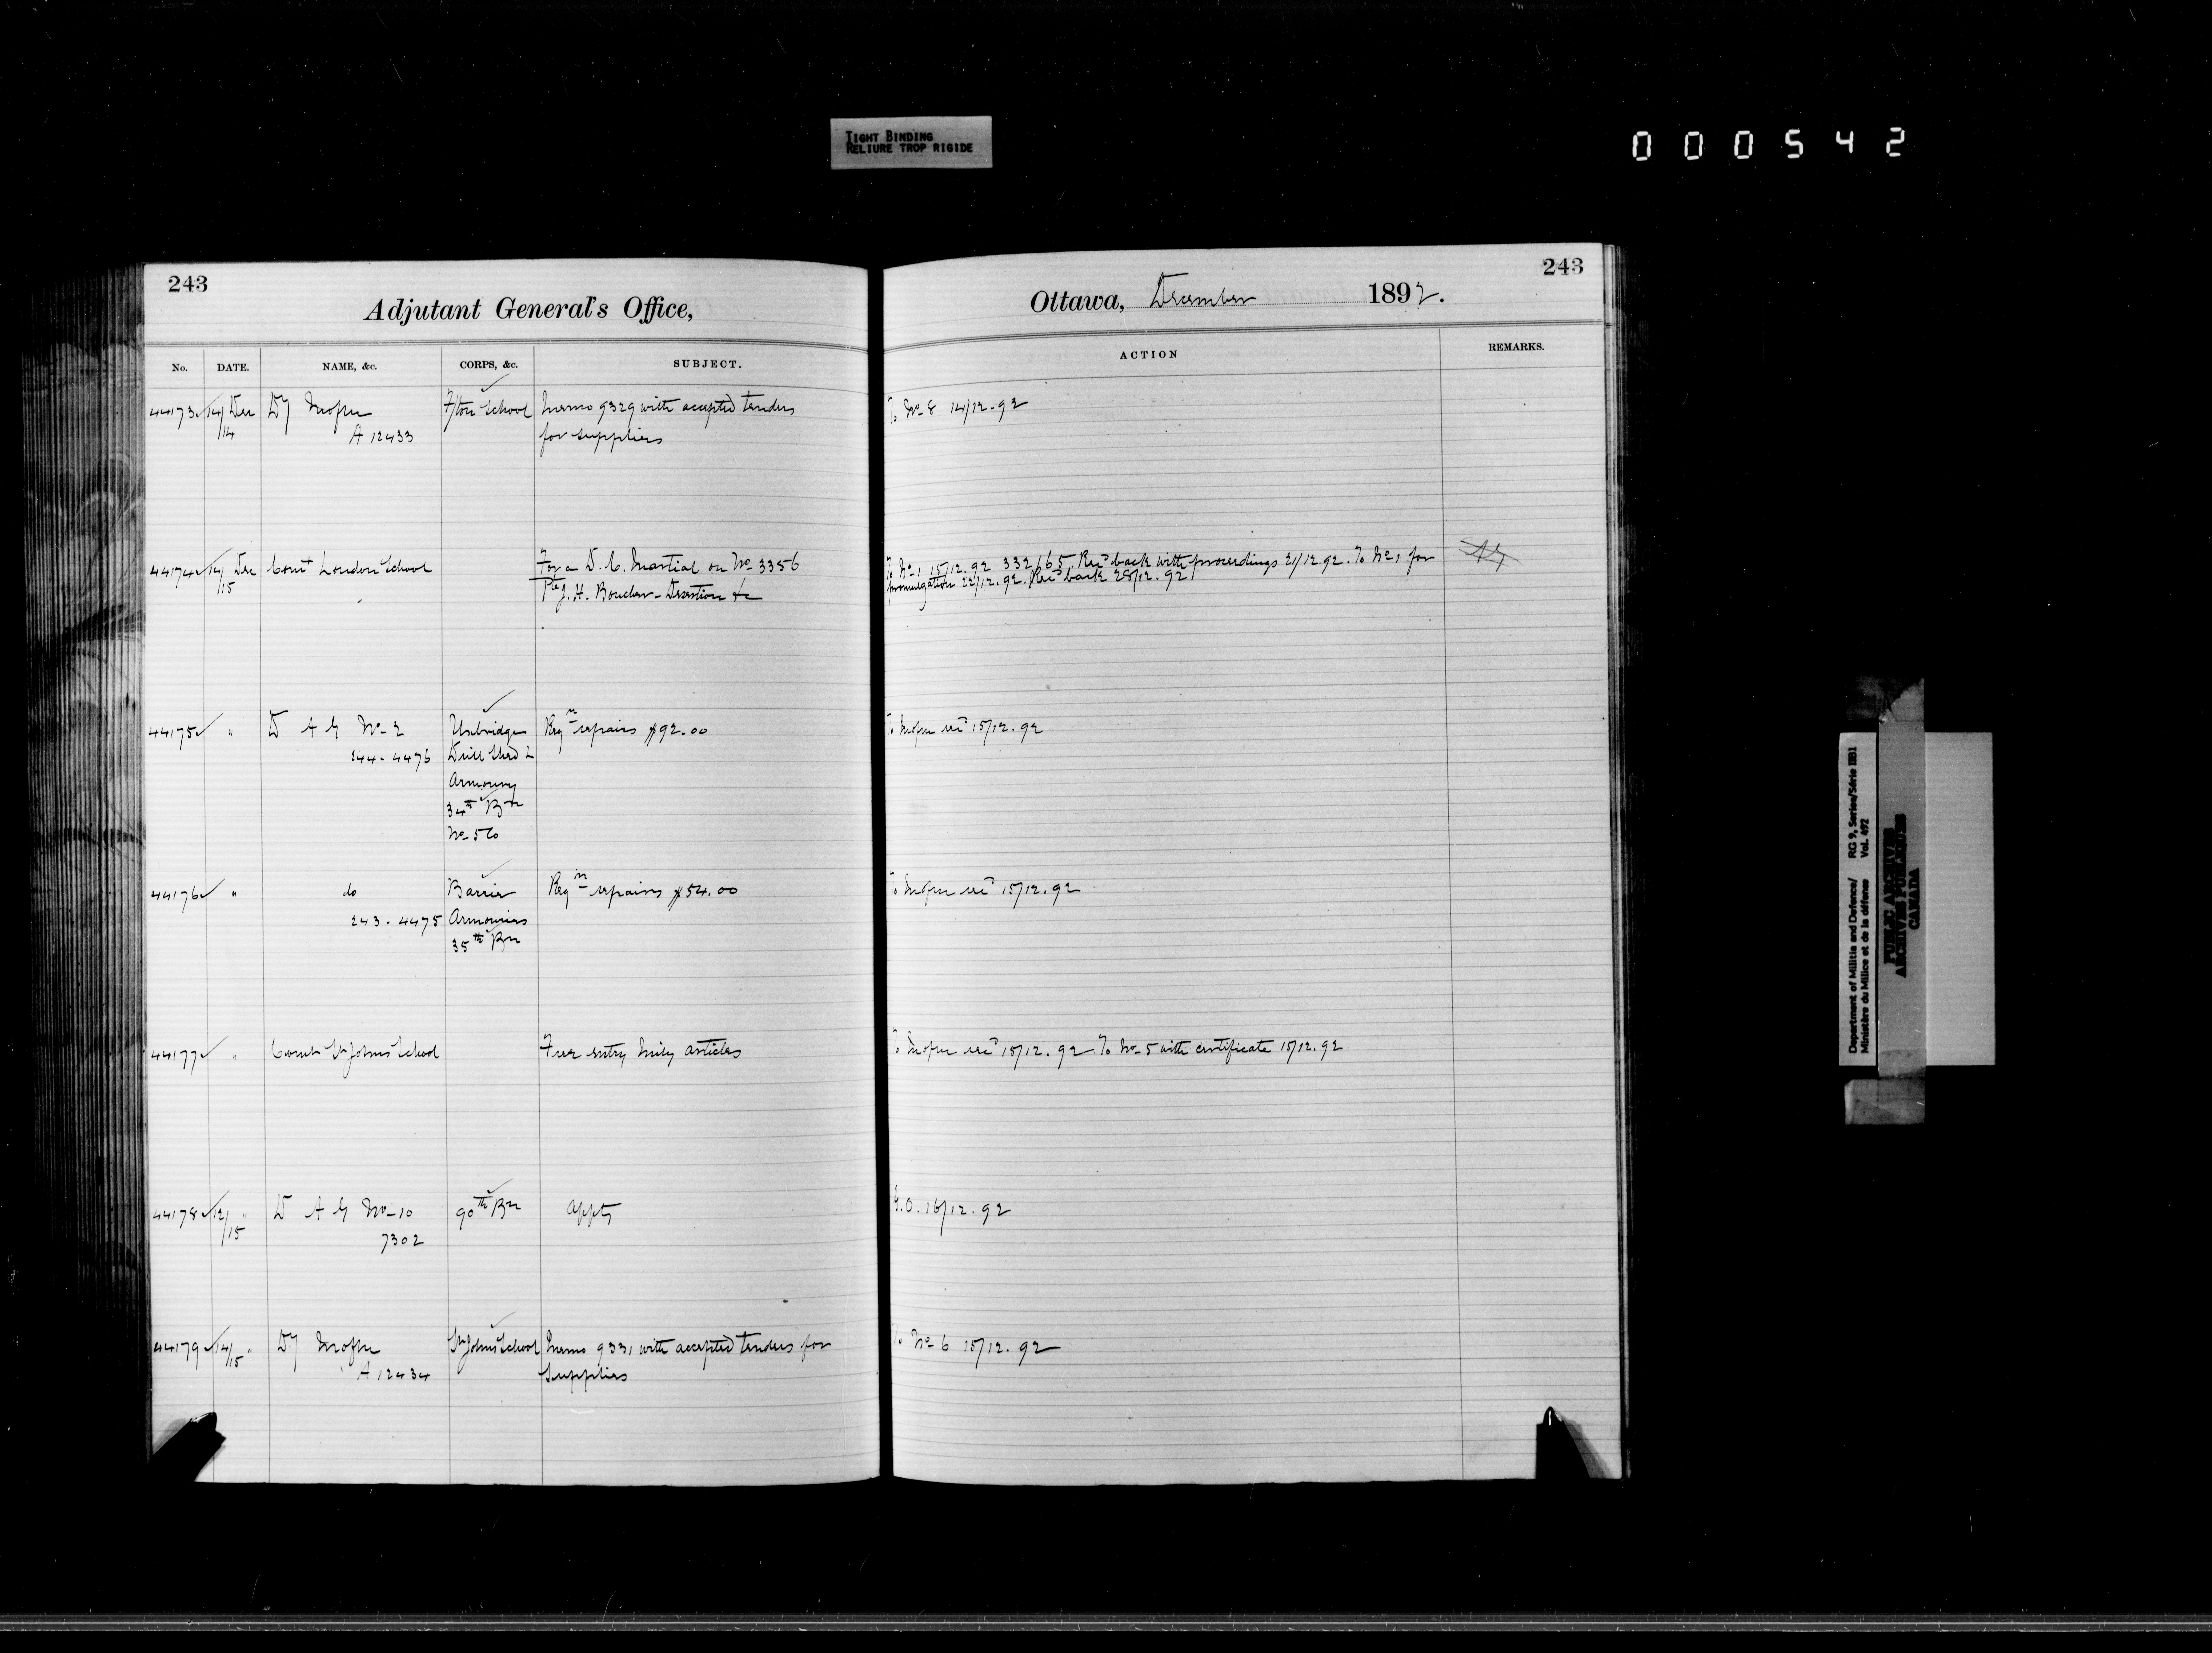 TIGHT BINDING
RELIURE TROP RIGIDE
000542
243
Adjutant General's Office,
No. DATE. NAME, &c. CORPS, &c. SUBJECT.
44173 14/14 Dec DY A 12433 F/ton School Memo 9329 with accepted tenders
for supplies
44174 14/15 Dec Comt London School For a D. C. Martial on No 3356
Pte J. H. Boucher - Desertion &c
44175 " D A G No 2 Uxbridge Reqn repairs $92.00
244. 4476 Drill Shed &
Armoury
34th Bn
No 5 Co
44176 " do Barrie Reqn repairs $54.00
243. 4475 Armouries
35th Bn
44177 " Comt St Johns School Free entry Mily articles
44178 12/15 " D A G No 10 90th Bn Appts
7302
44179 14/15 " DY St Johns School Memo 9331 with accepted tenders for
A 12434 supplies
243
Ottawa, December 1892.
ACTION REMARKS.
To No 8 14/12.92
To No 1 15/12.92 332/65. Recd back with proceedings 21/12.92. To No 1 for
promulgation 22/12.92. Recd back 28/12.92
15/12.92
15/12.92
15/12.92 To No 5 with certificate 15/12.92
G.O. 16/12.92
To No 6 15/12.92
Department of Militia and Defence/ RG 9, Series/Série IIB1
Ministère du Milice et de la défense Vol. 492
PUBLIC ARCHIVES
ARCHIVES PUBLIQUES
CANADA